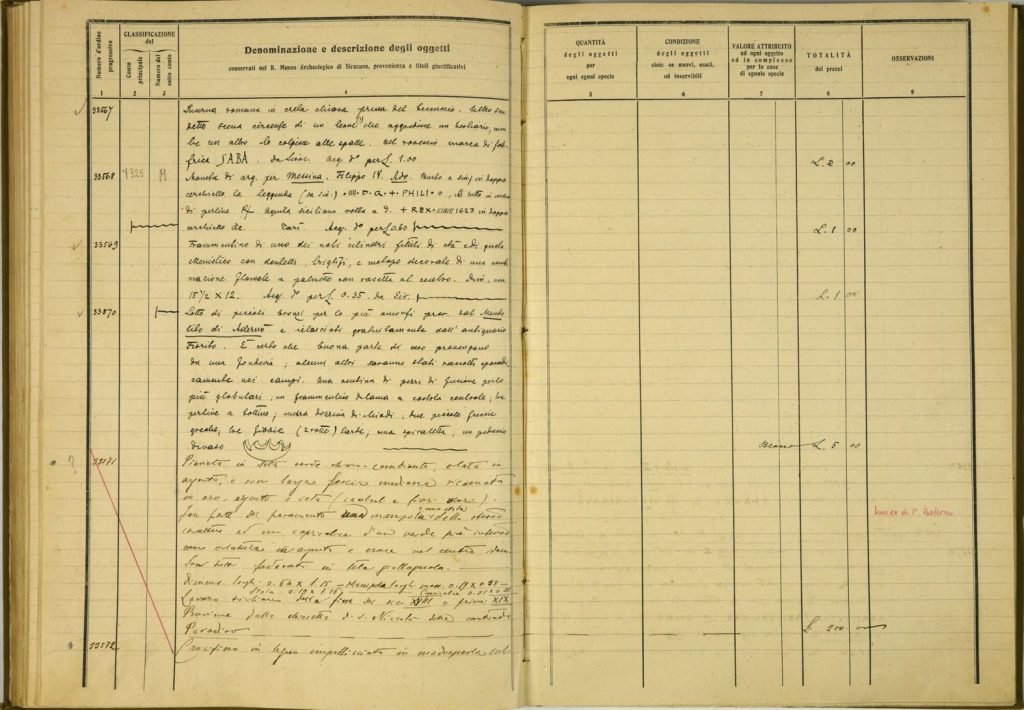 Numero d'ordine progressivo
CLASSIFICAZIONE
del
Conto principale
Numero del sotto conto
Denominazione e descrizione degli oggetti
conservati nel R. Museo Archeologico di Siracusa, provenienza e titoli giustificativi
1 2 3 4
33567 Lucerna romana in creta chiara priva del beccuccio. Nello sco
detto scena circense di un leone che aggredisce un bestiario, men
tre un altro lo colpisce alle spalle. Nel rovescio marca di fab
brica SABA. Acq. per £ 1.00
33568 7325 M Moneta di arg. per Messina. Filippo IV. Busto a sin. in doppio
cerchiello la leggenda (da sin.) PHILI
di perline Rf. aquila siciliana volta a d. + REX 1623 in doppio
cerchiello Tarì. Acq. per £ 0.60
33569 Frammentino di uno dei noti cilindri fittili di età
ellenistico con dentelli, e metope decorate di una combi
nazione floreale a palmette con rosetta al centro. Dim. cm.
15 1/2 X 12. Acq. per £ 0.35. da
33570 Lotto di piccoli bronzi per lo più amorfi prov. dal Mendo
lito di Adernò e rilasciati gratuitamente dall'antiquario
Fiorito. È certo che buona parte di essi provengono
da una fonderia; alcuni altri saranno stati raccolti sporadi
camente nei campi. Una ventina di pezzi di fusione per lo
più globulari, un frammentino di lama a costola centrale, tre
perline a bottine; mezza dozzina di chiodi, due piccole frecce
greche, tre fibule (2 rotte) tarde, una spiraletta, un
? 33571 Pianeta in seta verde chiaro-cambiante, orlata in
argento, e con larga fascia mediana ricamata
in oro, argento e seta (
Fan parte del paramento una manipola e una stola dello stesso
carattere ed un copricalice d'un verde più intenso
con orlatura in argento e croce nel centro idem
Son tutti foderati in tela giallognola.
Dimens. lungh. 0.64 x 1.15 - Manipola lungh. mass. 0.19 x 0.88 -
Stola: 0.19 x 1.15
Lavoro siciliano della fine del sec. XVIII o primi XIX
Proviene dalla chiesetta di S. Niccolò della contrada
Paradiso
33572 Crocifisso in legno impellicciato in madreperla sul
QUANTITÀ
degli oggetti
per
ogni egual specie
CONDIZIONE
degli oggetti
cioè: se nuovi, usati,
od inservibili
VALORE ATTRIBUITO
ad ogni oggetto
ed in complesso
per le cose
di eguale specie
TOTALITÀ
dei prezzi
OSSERVAZIONI
5 6 7 8 9
L. 2 00
L. 1 00
L. 1 00
L. 5 00
Museo di P. Bellomo
£ 200